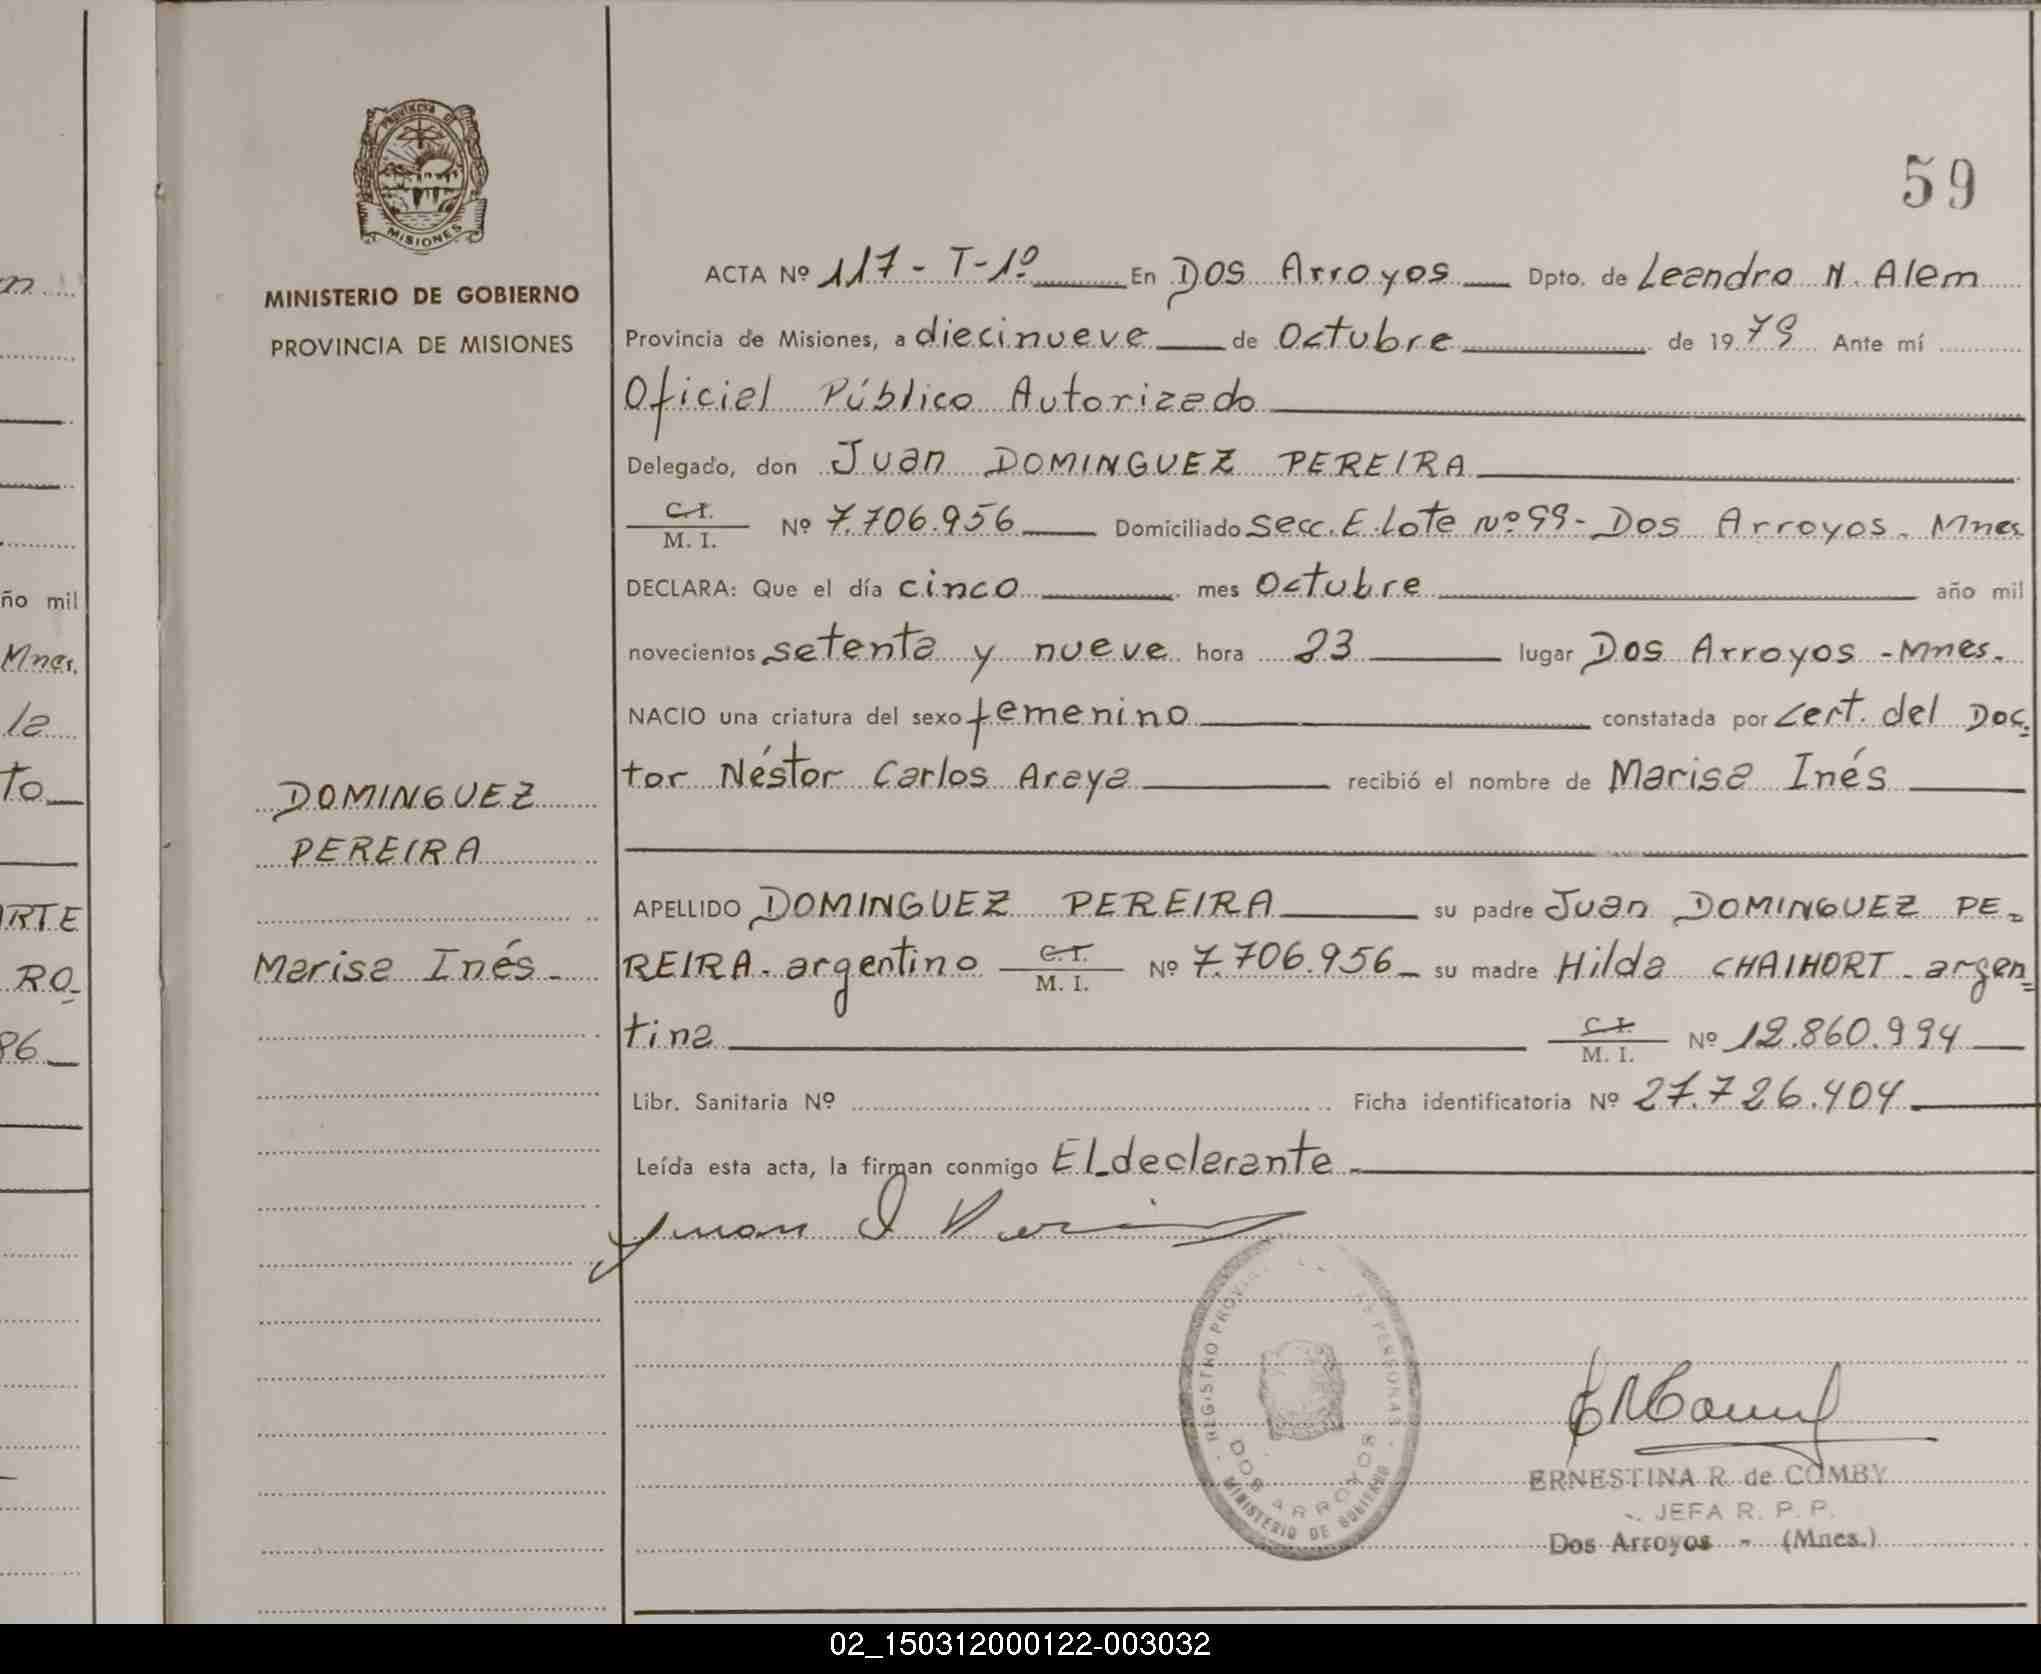 m
ño mil
Mnes.
la
to
ARTE
RO-
86
Provincia de
MISIONES
MINISTERIO DE GOBIERNO
PROVINCIA DE MISIONES
DOMINGUEZ
PEREIRA
Marisa Inés
59
ACTA Nº 117 - T-1º En Dos Arroyos Dpto. de Leandro N. Alem
Provincia de Misiones, a diecinueve de Octubre de 1979 Ante mí
Oficial Público Autorizado
Delegado, don Juan DOMINGUEZ PEREIRA
C.I.
M. I. Nº 7.706.956 Domiciliado Secc. E. Lote Nº 99 - Dos Arroyos. Mnes
DECLARA: Que el día cinco mes Octubre año mil
novecientos setenta y nueve hora 23 lugar Dos Arroyos - Mnes.
NACIO una criatura del sexo femenino constatada por Cert. del Doc-
tor Néstor Carlos Araya recibió el nombre de Marisa Inés
APELLIDO DOMINGUEZ PEREIRA su padre Juan DOMINGUEZ PE-
REIRA - argentino C.I. M. I. Nº 7.706.956 su madre Hilda CHAIHORT - argen-
tina C.I. M. I. Nº 12.860.994
Libr. Sanitaria Nº Ficha identificatoria Nº 27.726.404
Leída esta acta, la firman conmigo El declarante
Juan D
REGISTRO PROV DE PERSONAS
DOS ARROYOS
MINISTERIO DE GOBIERNO
ERNESTINA R. de COMBY
JEFA R. P. P.
Dos Arroyos - (Mnes.)
02_150312000122-003032